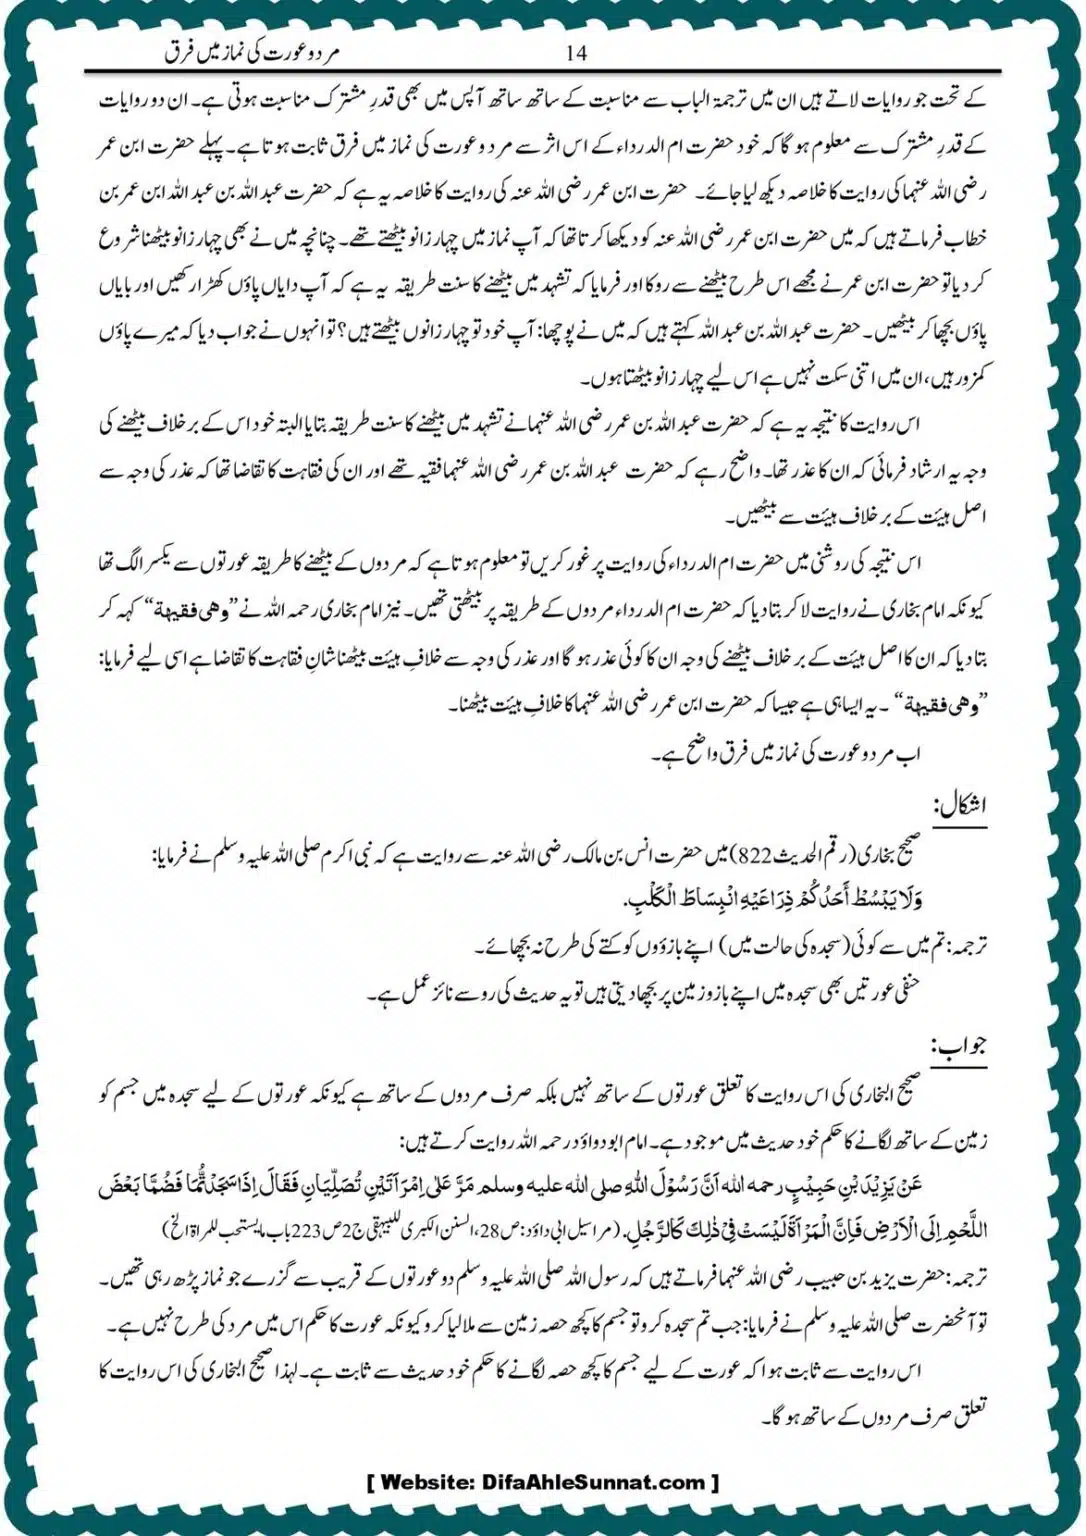 14
مرد و عورت کی نماز میں فرق
کے تحت جو روایات لاتے ہیں ان میں ترجمۃ الباب سے مناسبت کے ساتھ ساتھ آپس میں بھی قدرِ مشترک مناسبت ہوتی ہے۔ ان دو روایات
کے قدرِ مشترک سے معلوم ہو گا کہ خود حضرت ام الدرداء کے اس اثر سے مرد و عورت کی نماز میں فرق ثابت ہوتا ہے۔ پہلے حضرت ابن عمر
رضی اللہ عنہما کی روایت کا خلاصہ دیکھ لیا جائے۔ حضرت ابن عمر رضی اللہ عنہ کی روایت کا خلاصہ یہ ہے کہ حضرت عبد اللہ بن عبد اللہ ابن عمر بن
خطاب فرماتے ہیں کہ میں حضرت ابن عمر رضی اللہ عنہ کو دیکھا کرتا تھا کہ آپ نماز میں چہار زانو بیٹھتے تھے۔ چنانچہ میں نے بھی چہار زانو بیٹھنا شروع
کر دیا تو حضرت ابن عمر نے مجھے اس طرح بیٹھنے سے روکا اور فرمایا کہ تشہد میں بیٹھنے کا سنت طریقہ یہ ہے کہ آپ دایاں پاؤں کھڑا رکھیں اور بایاں
پاؤں بچھا کر بیٹھیں۔ حضرت عبد اللہ بن عبد اللہ کہتے ہیں کہ میں نے پوچھا: آپ خود تو چہار زانوں بیٹھتے ہیں؟ تو انہوں نے جواب دیا کہ میرے پاؤں
کمزور ہیں، ان میں اتنی سکت نہیں ہے اس لیے چہار زانو بیٹھتا ہوں۔
اس روایت کا نتیجہ یہ ہے کہ حضرت عبد اللہ بن عمر رضی اللہ عنہما نے تشہد میں بیٹھنے کا سنت طریقہ بتایا البتہ خود اس کے بر خلاف بیٹھنے کی
وجہ یہ ارشاد فرمائی کہ ان کا عذر تھا۔ واضح رہے کہ حضرت عبد اللہ بن عمر رضی اللہ عنہما فقیہ تھے اور ان کی فقاہت کا تقاضا تھا کہ عذر کی وجہ سے
اصل ہیئت کے بر خلاف ہیئت سے بیٹھیں۔
اس نتیجہ کی روشنی میں حضرت ام الدرداء کی روایت پر غور کریں تو معلوم ہوتا ہے کہ مردوں کے بیٹھنے کا طریقہ عورتوں سے یکسر الگ تھا
کیونکہ امام بخاری نے روایت لا کر بتا دیا کہ حضرت ام الدرداء مردوں کے طریقہ پر بیٹھتی تھیں۔ نیز امام بخاری رحمہ اللہ نے ”وهی فقیهة“ کہہ کر
بتا دیا کہ ان کا اصل ہیئت کے بر خلاف بیٹھنے کی وجہ ان کا کوئی عذر ہو گا اور عذر کی وجہ سے خلافِ ہیئت بیٹھنا شانِ فقاہت کا تقاضا ہے اسی لیے فرمایا:
”وهی فقیهة“۔ یہ ایسا ہی ہے جیسا کہ حضرت ابن عمر رضی اللہ عنہما کا خلافِ ہیئت بیٹھنا۔
اب مرد و عورت کی نماز میں فرق واضح ہے۔
اشکال:
صحیح بخاری (رقم الحدیث 822) میں حضرت انس بن مالک رضی اللہ عنہ سے روایت ہے کہ نبی اکرم صلی اللہ علیہ وسلم نے فرمایا:
وَلَا يَبْسُطْ أَحَدُكُمْ ذِرَاعَيْهِ انْبِسَاطَ الْكَلْبِ.
ترجمہ: تم میں سے کوئی (سجدہ کی حالت میں) اپنے بازؤوں کو کتے کی طرح نہ بچھائے۔
حنفی عورتیں بھی سجدہ میں اپنے بازو زمین پر بچھا دیتی ہیں تو یہ حدیث کی رو سے نائز عمل ہے۔
جواب:
صحیح البخاری کی اس روایت کا تعلق عورتوں کے ساتھ نہیں بلکہ صرف مردوں کے ساتھ ہے کیونکہ عورتوں کے لیے سجدہ میں جسم کو
زمین کے ساتھ لگانے کا حکم خود حدیث میں موجود ہے۔ امام ابو داؤد رحمہ اللہ روایت کرتے ہیں:
عَنْ يَزِيْدَ بْنِ حَبِيْبٍ رحمه الله اَنَّ رَسُوْلَ اللهِ صلى الله عليه وسلم مَرَّ عَلٰى اِمْرَأَتَيْنِ تُصَلِّيَانِ فَقَالَ اِذَا سَجَدْتُّمَا فَضُمَّا بَعْضَ
اللَّحْمِ اِلَى الْاَرْضِ فَاِنَّ الْمَرْأَةَ لَيْسَتْ فِيْ ذٰلِكَ كَالرَّجُلِ. (مراسیل ابی داؤد: ص28، السنن الکبری للبیہقی ج2 ص223 باب ما یستحب للمراۃ الخ)
ترجمہ: حضرت یزید بن حبیب رضی اللہ عنہما فرماتے ہیں کہ رسول اللہ صلی اللہ علیہ وسلم دو عورتوں کے قریب سے گزرے جو نماز پڑھ رہی تھیں۔
تو آنحضرت صلی اللہ علیہ وسلم نے فرمایا: جب تم سجدہ کرو تو جسم کا کچھ حصہ زمین سے ملا لیا کرو کیونکہ عورت کا حکم اس میں مرد کی طرح نہیں ہے۔
اس روایت سے ثابت ہوا کہ عورت کے لیے جسم کا کچھ حصہ لگانے کا حکم خود حدیث سے ثابت ہے۔ لہذا صحیح البخاری کی اس روایت کا
تعلق صرف مردوں کے ساتھ ہو گا۔
[ Website: DifaAhleSunnat.com ]